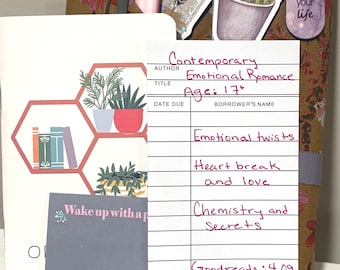 your
life
Contemporary
AUTHOR
Emotional Romance
TITLE
Age: 17+
DATE DUE
BORROWER'S NAME
Emotional twists
Heart break
and love
Chemistry and
Secrets
Goodreads: 4.09
Wake up with a